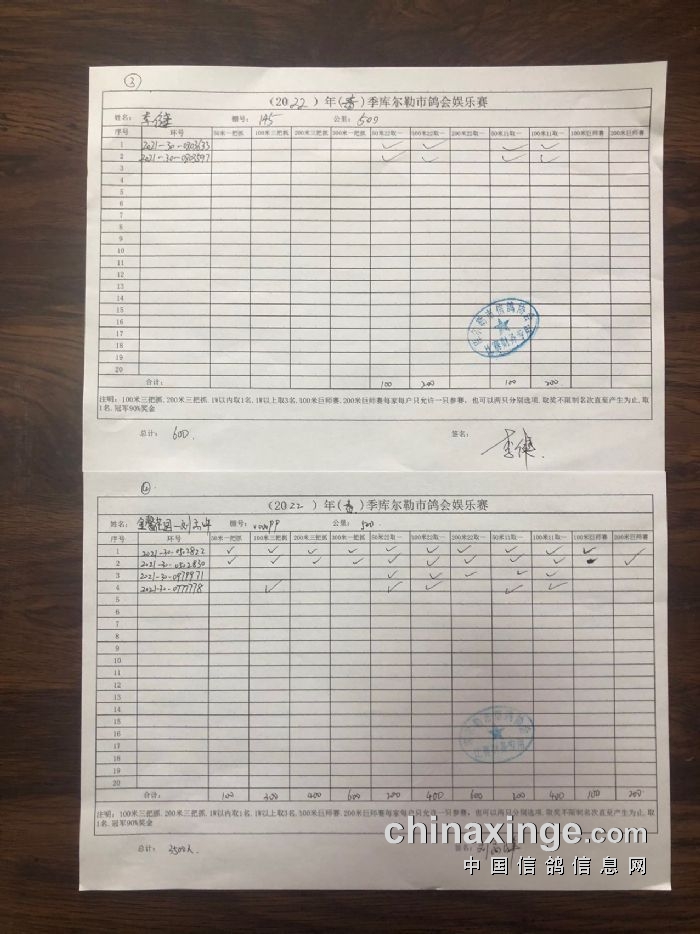 ③
（2022）年（春）季库尔勒市鸽会娱乐赛
姓名：李健 棚号：145 公里：500
序号 环号 50米一把抓 100米三把抓 200米三把抓 300米一把抓 50米22取一 100米22取一 200米22取一 50米11取一 100米11取一 100米巨师赛 200米巨师赛
1 2021-30-0803633 ✓ ✓ ✓ ✓
2 2021-30-0803597 ✓ ✓ ✓ ✓
3
4
5
6
7
8
9
10
11
12
13
14
15
16
17
18
19
20
合计： 100 200 100 200
注明：100米三把抓.200米三把抓.1W以内取1名.1W以上取3名.100米巨师赛.200米巨师赛每家每户只允许一只参赛，也可以两只分别选项.取奖不限制名次直至产生为止.取
1名.冠军90%奖金
总计：600. 签名：李健.
④
（2022）年（春）季库尔勒市鸽会娱乐赛
姓名： 棚号： 公里：500
序号 环号 50米一把抓 100米三把抓 200米三把抓 300米一把抓 50米22取一 100米22取一 200米22取一 50米11取一 100米11取一 100米巨师赛 200米巨师赛
1 2021-30-0502822 ✓ ✓ ✓ ✓ ✓ ✓ ✓ ✓ ✓ ✓
2 2021-30-0502830 ✓ ✓ ✓ ✓ ✓ ✓ ✓ ✓ ✓ ✓
3 2021-30-0979971 ✓ ✓ ✓ ✓ ✓
4 2021-30-0777778 ✓ ✓ ✓ ✓ ✓
5
6
7
8
9
10
11
12
13
14
15
16
17
18
19
20
合计： 100 300 400 600 200 400 600 200 400 100 200
注明：100米三把抓.200米三把抓.1W以内取1名.1W以上取3名.100米巨师赛.200米巨师赛每家每户只允许一只参赛，也可以两只分别选项.取奖不限制名次直至产生为止.取
1名.冠军90%奖金
总计： 签名：
chinaxinge.com
中国信鸽信息网